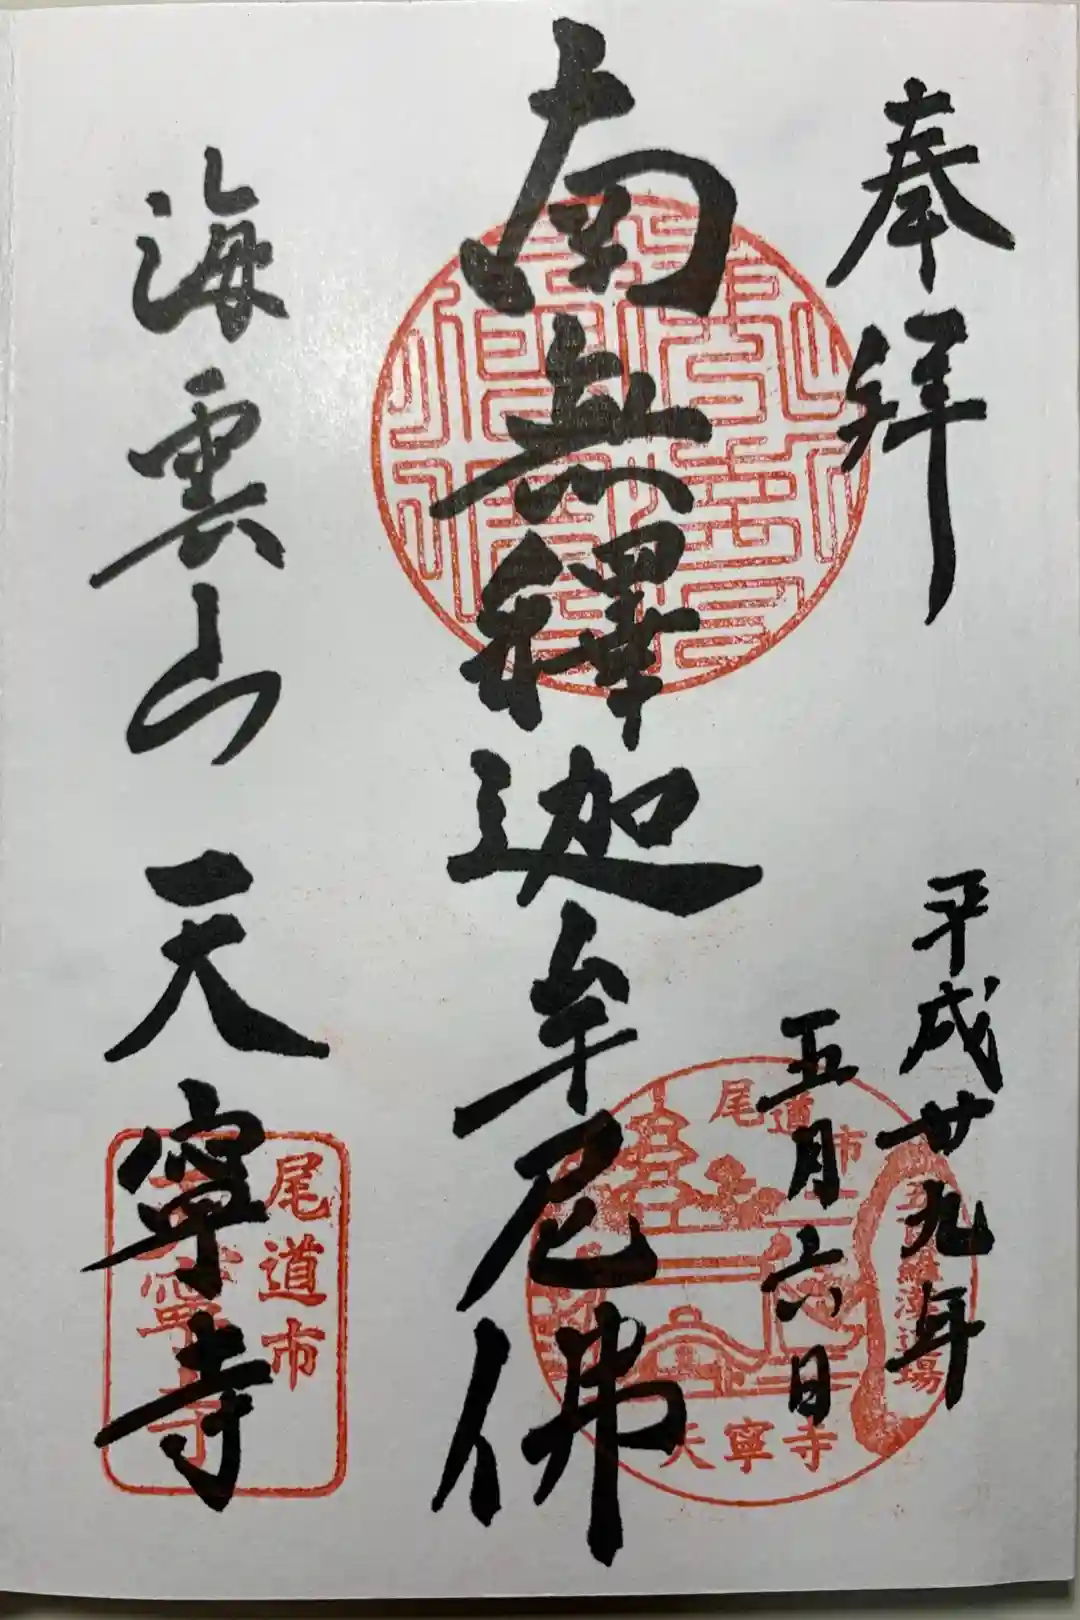 奉拜
平成廿九年
五月六日
南無釋迦牟尼佛
海雲山 天寧寺
尾道市
天寧寺
尾道市
寧寺